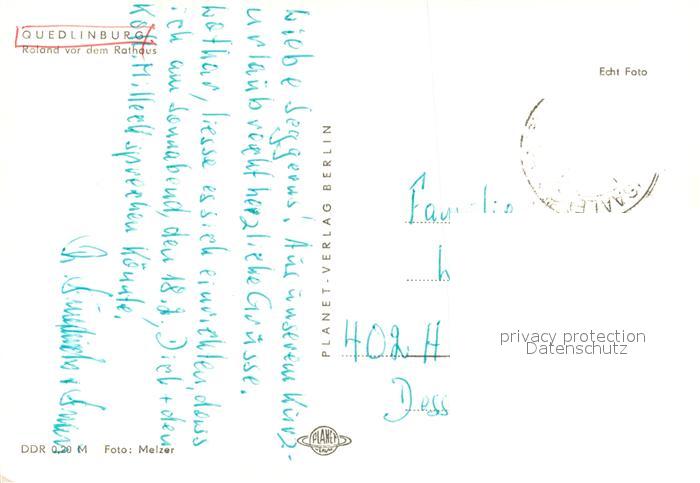 QUEDLINBURG
Roland vor dem Rathaus
Echt Foto
Liebe
Aus unserem Kurz-
urlaub recht herzliche Grüsse.
Lothar, liesse es sich einrichten, dass
ich am Sonnabend, den 18.7., Dich + den
Koll. sprechen könnte.
PLANET-VERLAG BERLIN
Familie
402 H
Dess
SAALE
privacy protection
Datenschutz
PLANET
DDR 0,20 M Foto: Melzer